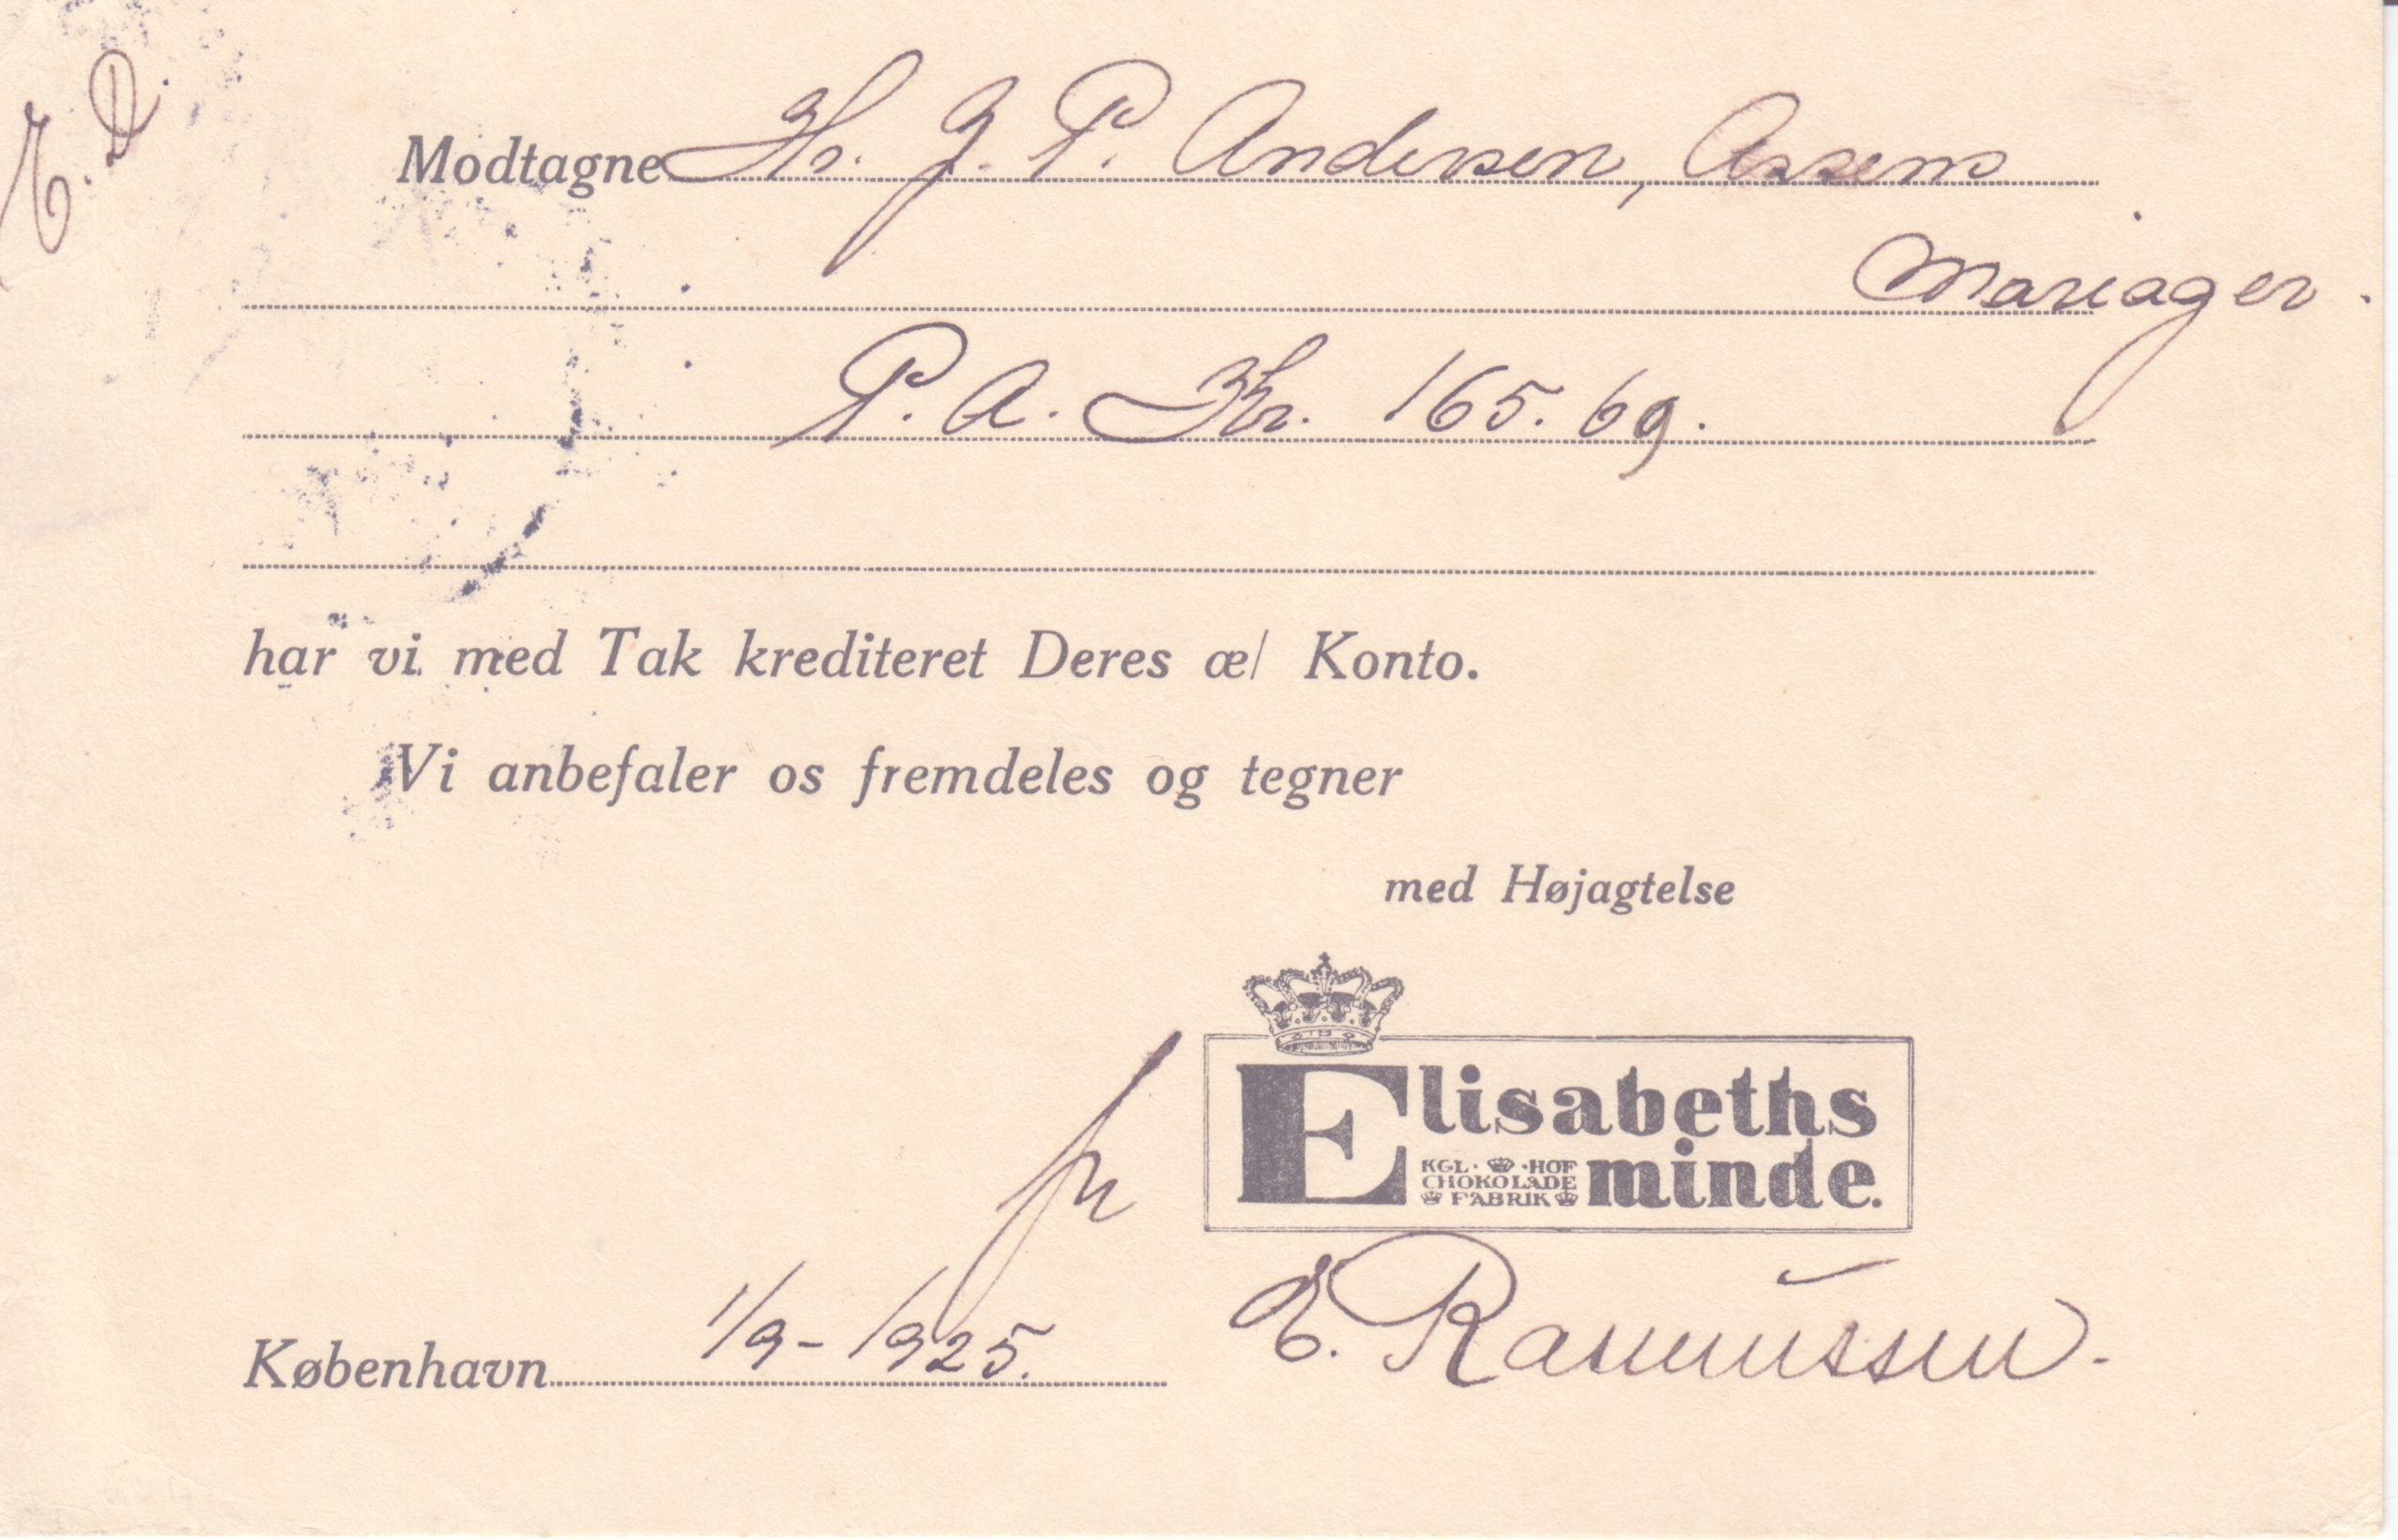 E. D.
Modtagne Hr. J. P. Andersen, Assens
Mariager.
P. A. Kr. 165.69.
har vi med Tak krediteret Deres æ/ Konto.
Vi anbefaler os fremdeles og tegner
med Højagtelse
Elisabeths
minde.
KGL. HOF
CHOKOLADE
FABRIK
København 1/9-1925.
E. Rasmussen.